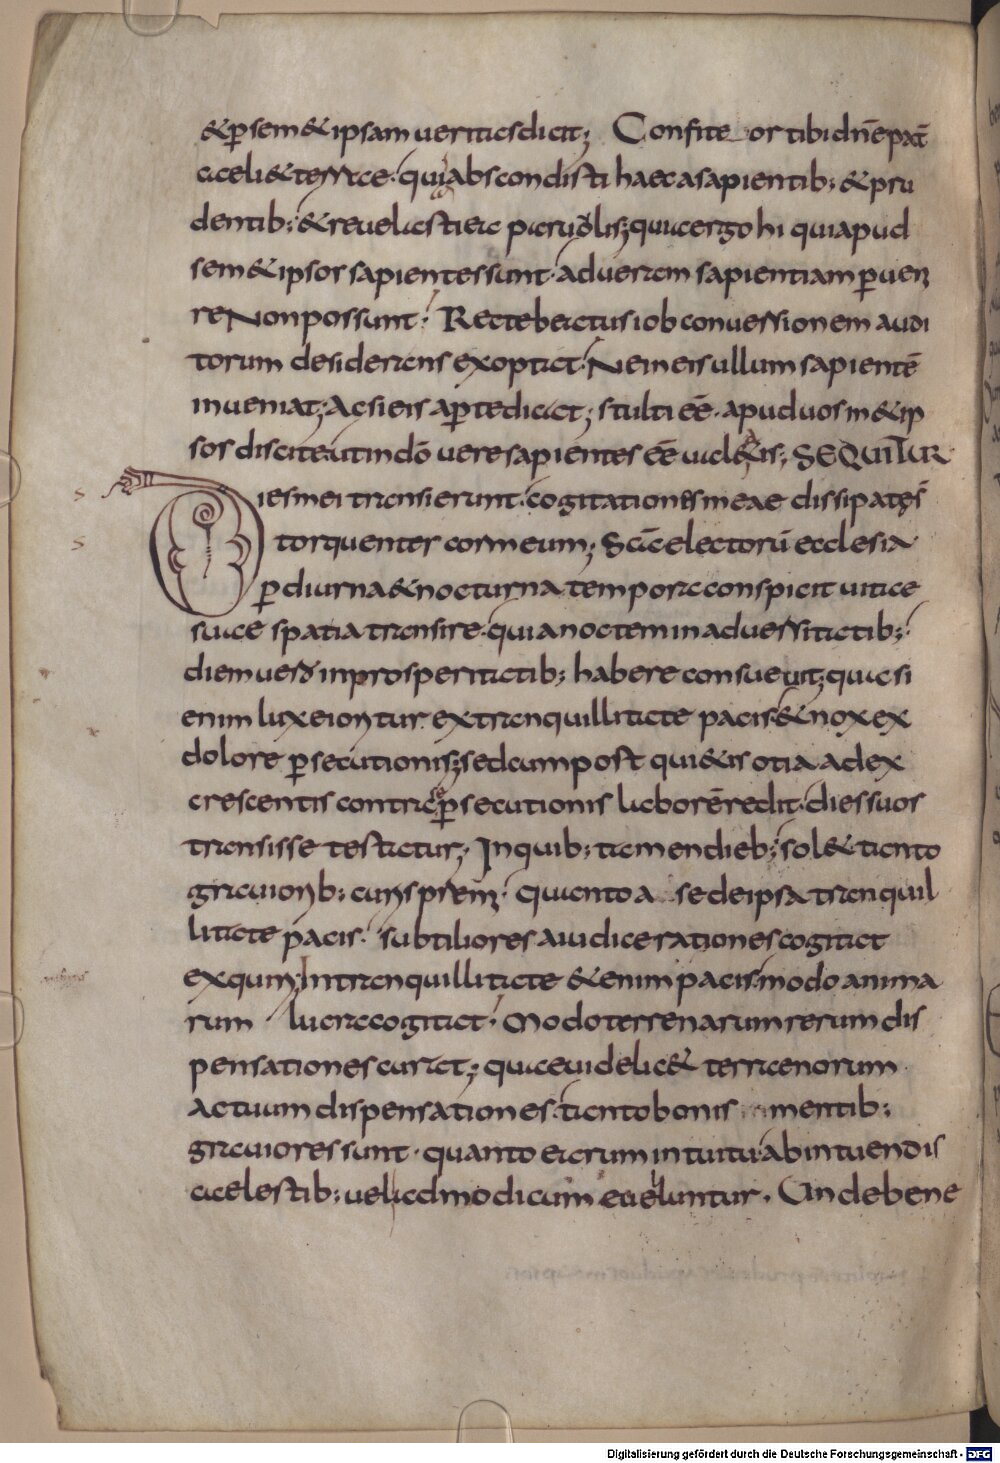 & p̱ sem&ipsam ueritas dicit; Confiteor tibi dn̄e pat̄
caeli & terrae. quia abscondisti haec a sapientib; & pru
dentib; & reuelasti ea paruulis; quia ergo hi qui apud
sem&ipsos sapientes sunt. ad ueram sapientiam p̱ueni
re non possunt. Recte beatus iob conuersionem audi
torum desiderans exoptat. Ne in eis ullum sapientē
inueniat; Ac si eis ap̱te dicat; stulti eē. apud uos m&ip
sos discite. ut in dō uere sapientes eē ual&is; SEQUITUR
Dies mei transierunt. cogitationes meae dissipatę s̄
torquentes cor meum; Scā electorū ecclesia
p̱ diurna & nocturna tempora conspicit uitae
suae spatia transire. quia noctem in aduersitatib;
diem uero in prosperitatib; habere consueuit; quasi
enim lux ei oritur ex tranquillitate pacis. & nox ex
dolore p̱secutionis; sed cum post qui&is otia ad ex
crescentis contra se p̱secutionis laborē redit. dies suos
transisse testatur; In quib; tamen dieb; sol& tanto
grauiorib; curis praemi. quanto a se de ipsa tranquil
litate pacis. subtiliores a iudice rationes cogitat
exquiri; In tranquillitate &enim pacis. modo anima
rum lucra cogitat. Modo terrenarum rerum dis
pensationes curat; quae uidelic& terraenorum
actuum dispensationes. tanto bonis mentib;
grauiores sunt. quanto earum intuitu. ab intuendis
caelestib; uel ad modicum euelluntur. Unde bene
Digitalisierung gefördert durch die Deutsche Forschungsgemeinschaft - DFG